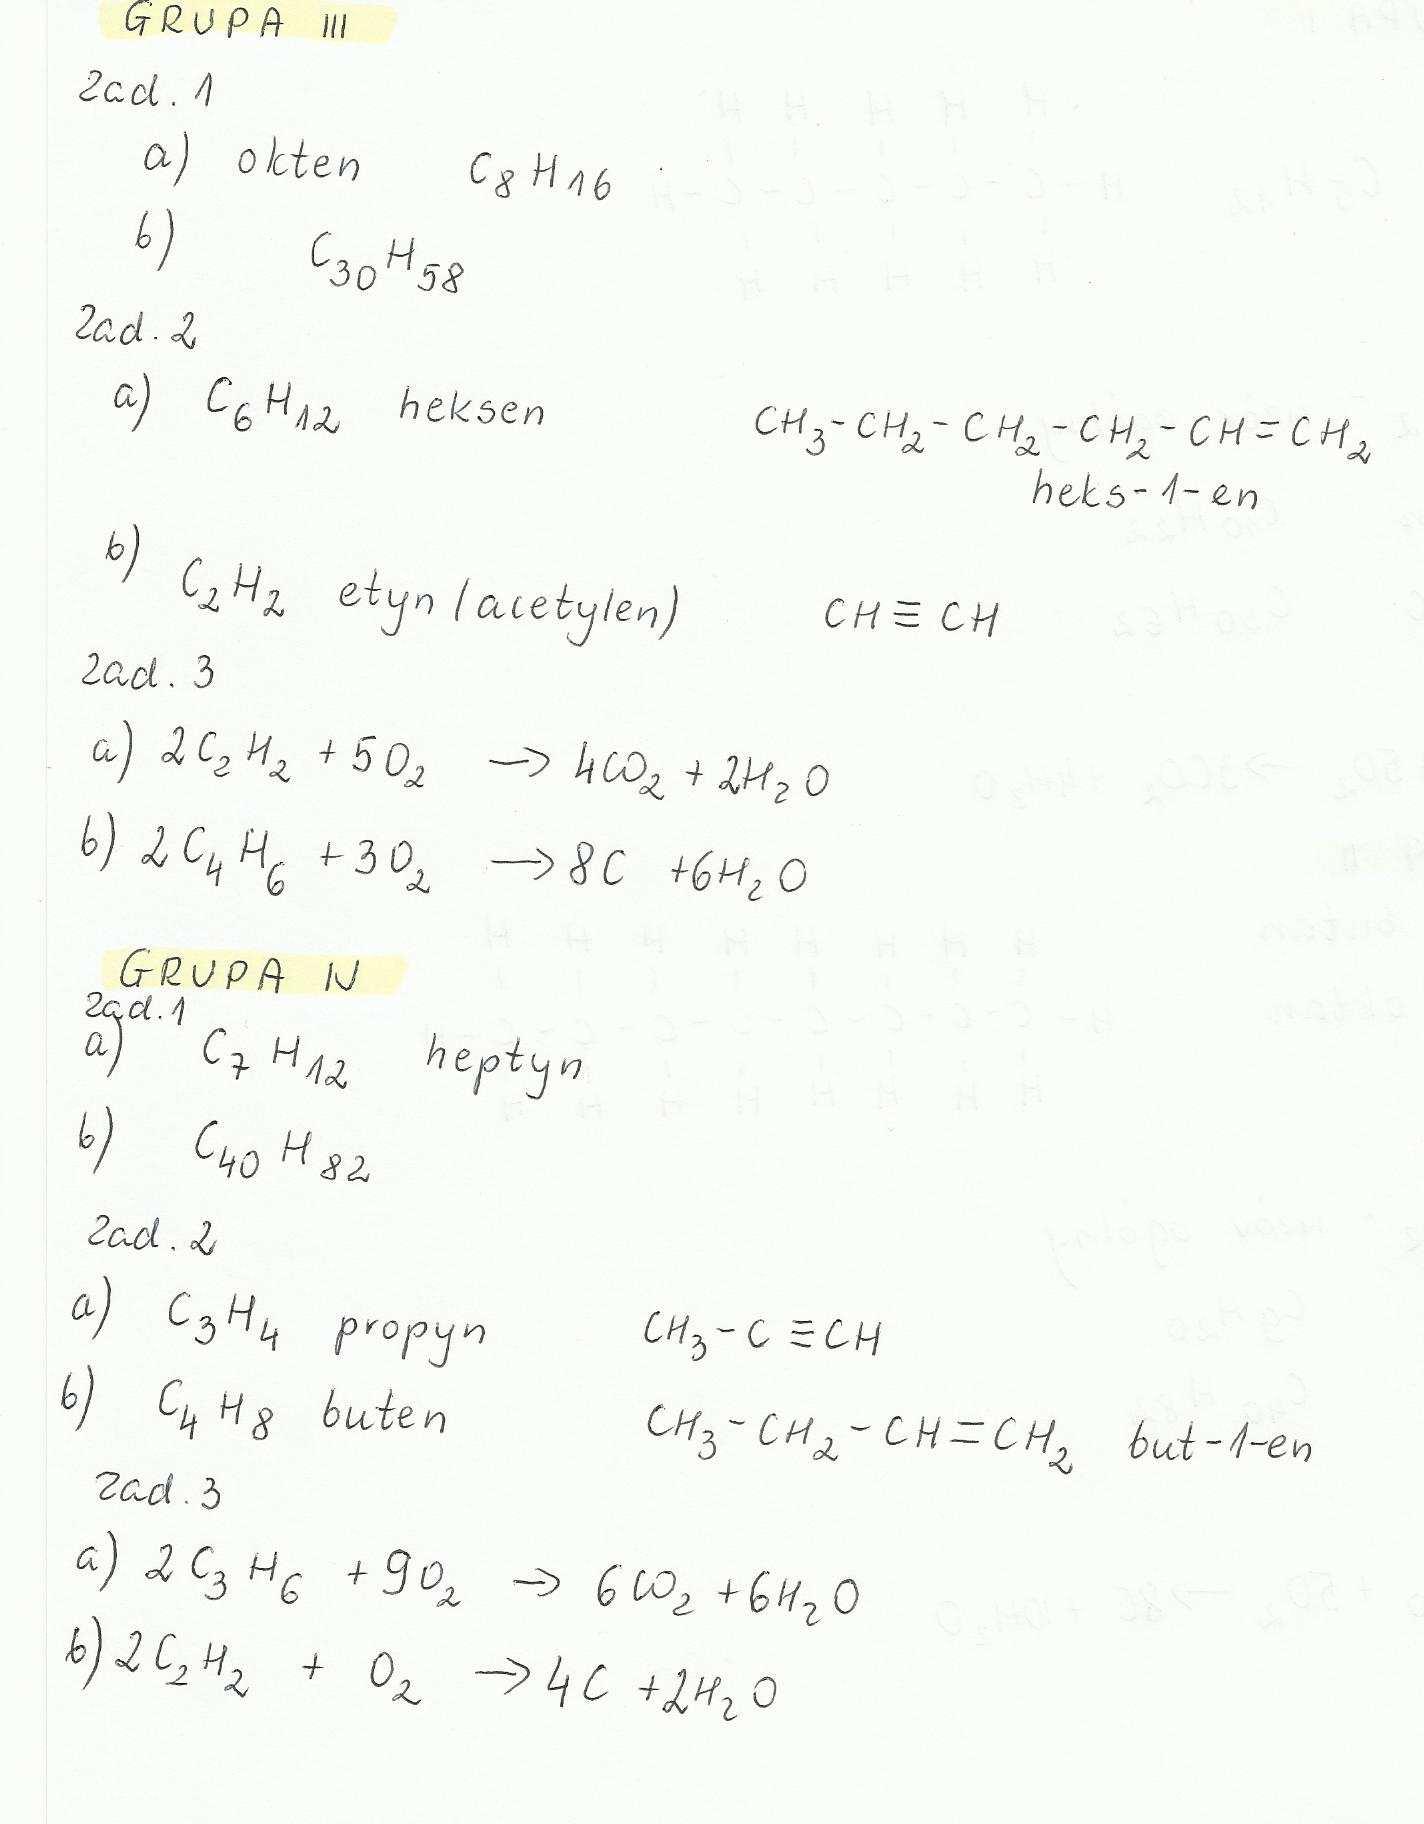 GRUPA III
zad. 1
a) okten C₈H₁₆
b) C₃₀H₅₈
zad. 2
a) C₆H₁₂ heksen CH₃-CH₂-CH₂-CH₂-CH=CH₂
heks-1-en
b) C₂H₂ etyn (acetylen) CH≡CH
zad. 3
a) 2C₂H₂ + 5O₂ → 4CO₂ + 2H₂O
b) 2C₄H₆ + 3O₂ → 8C + 6H₂O
GRUPA IV
zad. 1
a) C₇H₁₂ heptyn
b) C₄₀H₈₂
zad. 2
a) C₃H₄ propyn CH₃-C≡CH
b) C₄H₈ buten CH₃-CH₂-CH=CH₂ but-1-en
zad. 3
a) 2C₃H₆ + 9O₂ → 6CO₂ + 6H₂O
b) 2C₂H₂ + O₂ → 4C + 2H₂O